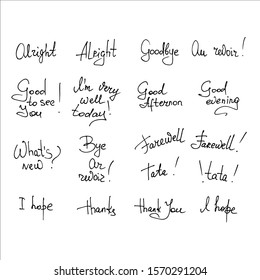 Alright Aleight Goodbye Au revoir!
Good to see you! I'm very well today! Good Afternoon Good evening
What's new? Bye Ar revoir! Farewell Tata! Farewell! !tata!
I hope thanks thank You I hope
shutterstock.com · 1570291204